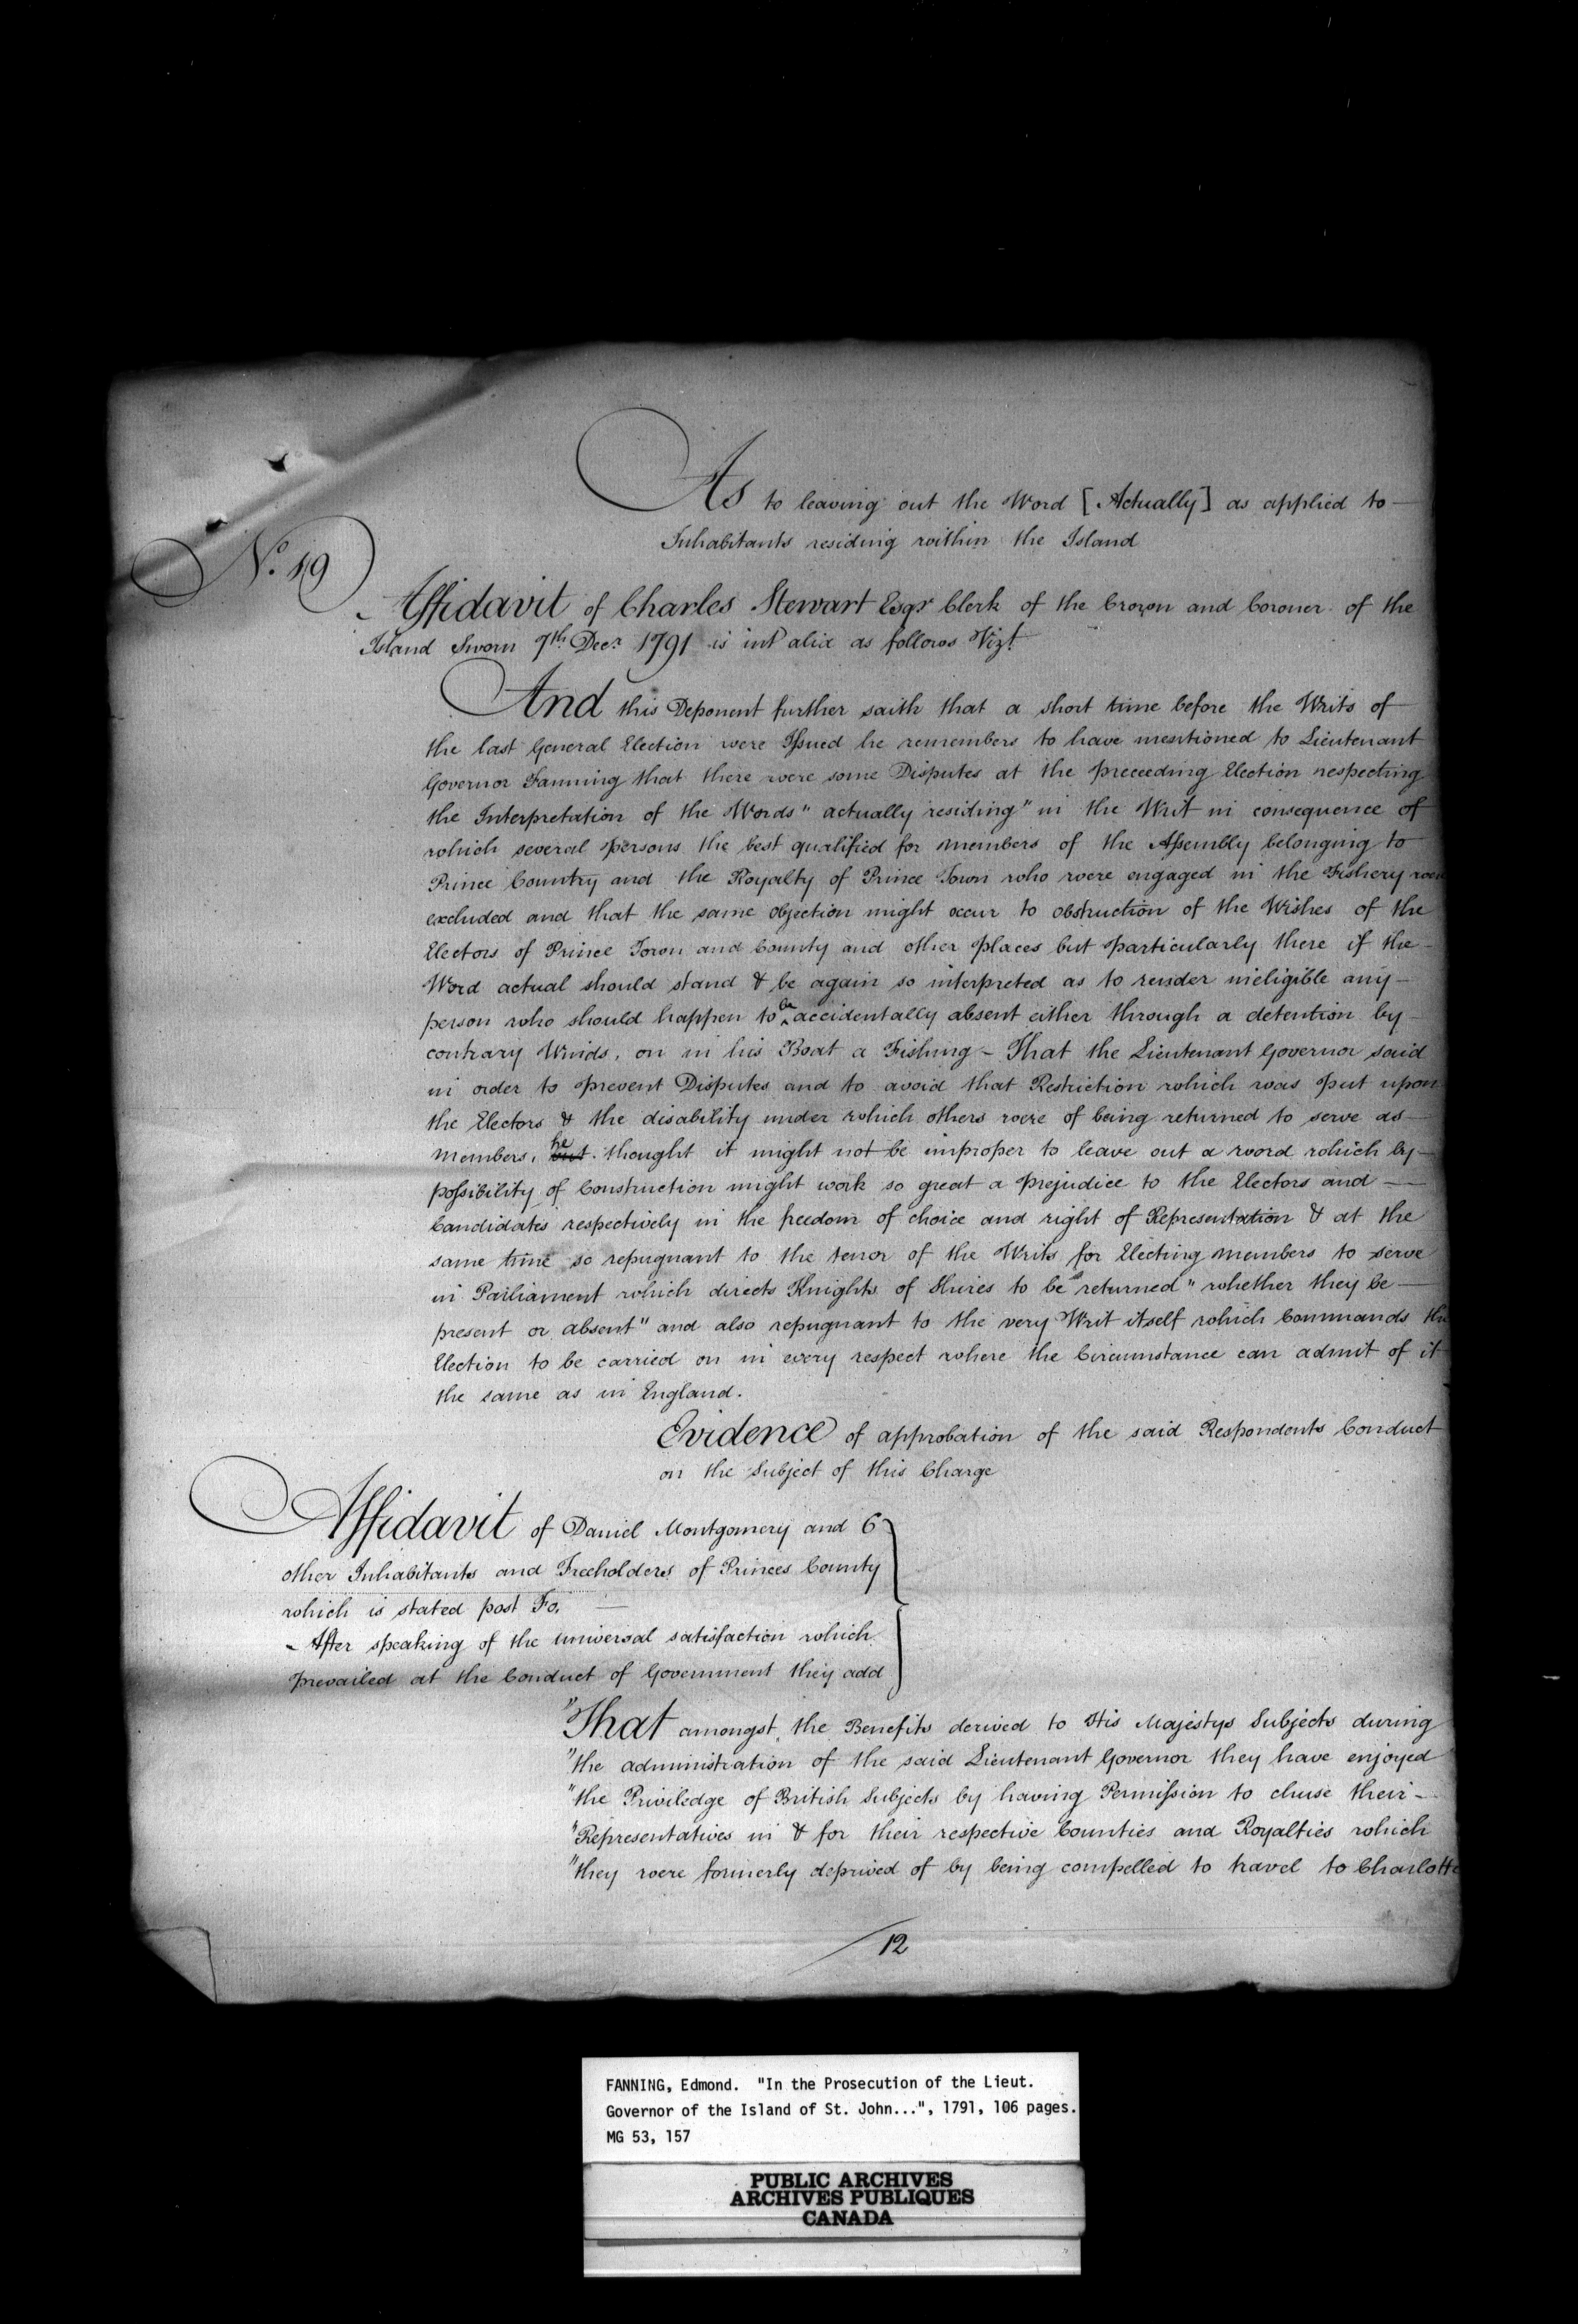 As to leaving out the Word [Actually] as applied to —
Inhabitants residing within the Island
No. 19
Affidavit of Charles Stewart Esqr Clerk of the Crown and Coroner of the
Island Sworn 7th Decr 1791 is int alia as follows Vizt
And this Deponent further saith that a short time before the Writs of
the last General Election were Issued he remembers to have mentioned to Lieutenant
Governor Fanning that there were some Disputes at the preceeding Election respecting
the Interpretation of the Words "actually residing" in the Writ in consequence of
which several persons the best qualified for members of the Assembly belonging to
Prince Country and the Royalty of Prince Town who were engaged in the Fishery were
excluded and that the same objection might occur to obstruction of the Wishes of the
Electors of Prince Town and County and other places but particularly there if the —
Word actual should stand & be again so interpreted as to render ineligible any —
person who should happen to be accidentally absent either through a detention by —
contrary Winds, on in his Boat a Fishing – That the Lieutenant Governor said
in order to prevent Disputes and to avoid that Restriction which was put upon
the Electors & the disability under which others were of being returned to serve as —
members, but he thought it might not be improper to leave out a word which by —
possibility of Construction might work so great a prejudice to the Electors and —
Candidates respectively in the freedom of choice and right of Representation & at the
same time so repugnant to the tenor of the Writs for Electing members to serve
in Parliament which directs Knights of Shires to be "returned" whether they be —
present or absent" and also repugnant to the very Writ itself which Commands the
Election to be carried on in every respect where the Circumstance can admit of it
the same as in England.
Evidence of approbation of the said Respondents Conduct
on the Subject of this Charge
Affidavit of Daniel Montgomery and 6
other Inhabitants and Freeholders of Princes County
which is stated post Fo. —
After speaking of the universal satisfaction which
prevailed at the Conduct of Government they add
"That amongst the Benefits derived to His Majestys Subjects during
"the administration of the said Lieutenant Governor they have enjoyed
"the Priviledge of British Subjects by having Permission to chuse their —
"Representatives in & for their respective Counties and Royalties which
"they were formerly deprived of by being compelled to travel to Charlotte
12
FANNING, Edmond. "In the Prosecution of the Lieut.
Governor of the Island of St. John...", 1791, 106 pages.
MG 53, 157
PUBLIC ARCHIVES
ARCHIVES PUBLIQUES
CANADA